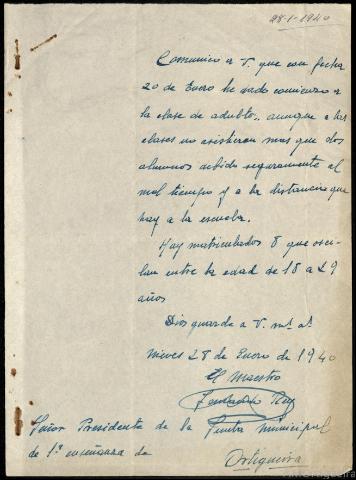 28-1-1940
Comunico a V. que con fecha
20 de Enero he dado comienzo a
la clase de adultos.. aunque a las
clases no asistieron mas que dos
alumnos debido seguramente al
mal tiempo y a la distancia que
hay a la escuela.
Hay matriculados 8 que osci-
lan entre la edad de 18 a 29
años
Dios guarde a V. m.s a.s
Nieves 28 de Enero de 1940
El Maestro
Señor Presidente de la Junta Municipal
de 1ª enseñanza de
Ortigueira